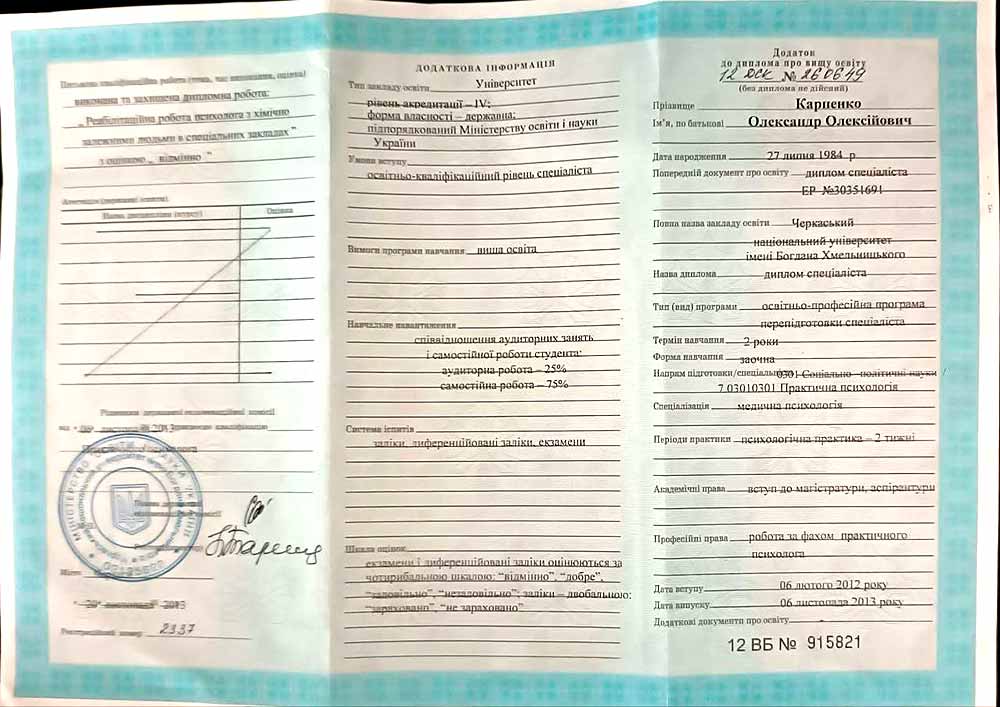 виконана та захищена дипломна робота:
„ Реабілітаційна робота психолога з хімічно
залежними людьми в спеціальних закладах ”
з оцінкою „ відмінно ”
Атестація (державні іспити)
Назва дисципліни (курсу) Оцінка
Рішенням державної екзаменаційної комісії
МІНІСТЕРСТВО ОСВІТИ І НАУКИ УКРАЇНИ
Місто
листопада 2013
Реєстраційний номер 2337
ДОДАТКОВА ІНФОРМАЦІЯ
Тип закладу освіти Університет
рівень акредитації – IV;
форма власності – державна;
підпорядкований Міністерству освіти і науки
України
Умови вступу
освітньо-кваліфікаційний рівень спеціаліста
Вимоги програми навчання вища освіта
Навчальне навантаження
співвідношення аудиторних занять
і самостійної роботи студента:
аудиторна робота – 25%
самостійна робота – 75%
Система іспитів
заліки, диференційовані заліки, екзамени
Шкала оцінок
екзамени і диференційовані заліки оцінюються за
чотирибальною шкалою: “відмінно”, “добре”,
“задовільно”, “незадовільно”; заліки – двобальною:
“зараховано”, “не зараховано”
Додаток
до диплома про вищу освіту
12 ДСК № 260649
(без диплома не дійсний)
Прізвище Карпенко
Ім’я, по батькові Олександр Олексійович
Дата народження 27 липня 1984 р
Попередній документ про освіту диплом спеціаліста
ЕР №30351691
Повна назва закладу освіти Черкаський
національний університет
імені Богдана Хмельницького
Назва диплома диплом спеціаліста
Тип (вид) програми освітньо-професійна програма
перепідготовки спеціаліста
Термін навчання 2 роки
Форма навчання заочна
Напрям підготовки/спеціальність 0301 Соціально -політичні науки /
7.03010301 Практична психологія
Спеціалізація медична психологія
Періоди практики психологічна практика – 2 тижні
Академічні права вступ до магістратури, аспірантури
Професійні права робота за фахом практичного
психолога
Дата вступу 06 лютого 2012 року
Дата випуску 06 листопада 2013 року
Додаткові документи про освіту
12 ВБ № 915821